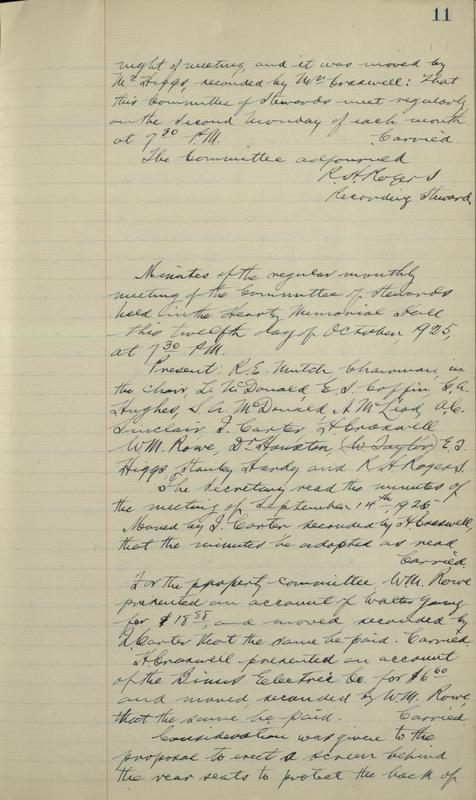 11
night of meeting, and it was moved by
Mr Higgs, seconded by Mr Craswell: That
this Committee of Stewards meet regularly
on the second Monday of each month
at 7 30 P.M. Carried.
The Committee adjourned
R. H. Rogers
Recording Steward.
Minutes of the regular monthly
meeting of the Committee of Stewards
held in the Heartz Memorial Hall
this twelfth day of October, 1925,
at 7 30 P.M.
Present: R.E. Mutch Chairman, in
the chair, L. McDonald, E. S. Coffin, G. A.
Hughes, S. A. McDonald, A. McLeod, A.C.
Sinclair, J. Carter, H Craswell
WM. Rowe, Dr Houston, (W Taylor) E. T.
Higgs, Stanley Hardy and R. H Rogers.
The Secretary read the minutes of
the meeting of September 14th, 1925
Moved by J. Carter seconded by H Craswell,
that the minutes be adopted as read
Carried.
For the property committee WM. Rowe
presented an account of Walter
for $18 and moved, seconded by
J. Carter that the same be paid. Carried
H. Craswell presented an account
of the Binns Electric Co. for $6 60
and moved, seconded by WM. Rowe,
that the same be paid. Carried
Consideration was given to the
proposal to erect a screen behind
the rear seats to protect the back of